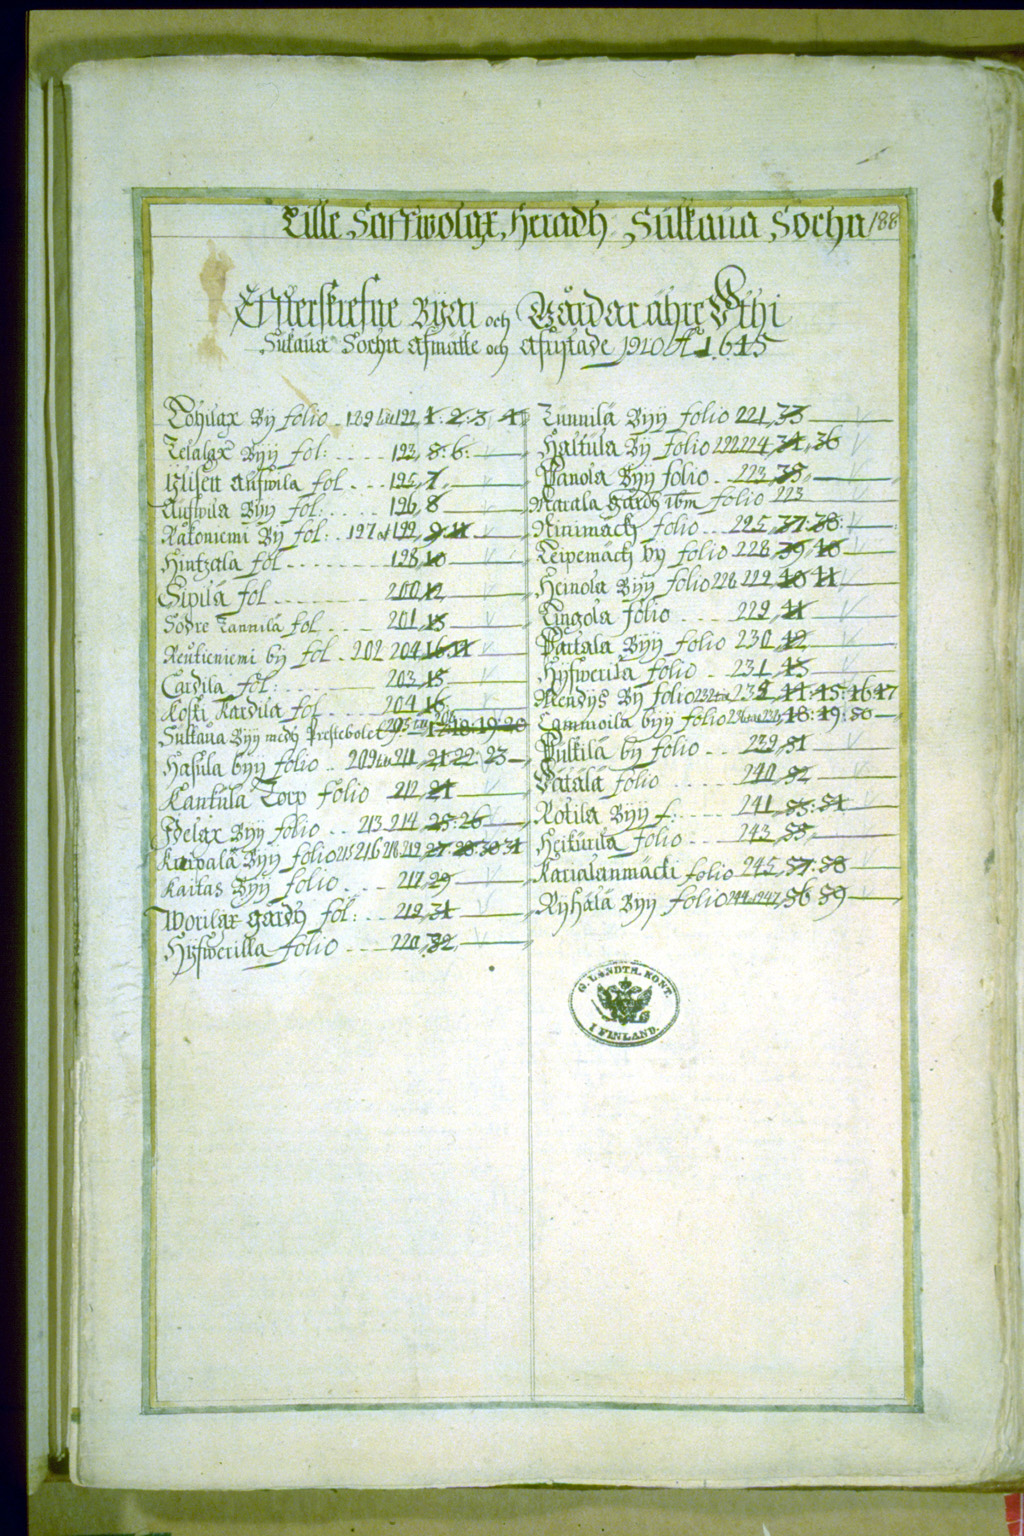 Lille Saffwolax Heradh Sulkaua Sochn 188
Effterskrefne Byar och Gårdar ähre Vthi
Sulkaua Sochn afmätte och afrijtade A 1645
Lohilax By folio 189 192 1. 2. 3 4
Telalax Byy fol: 193, 5: 6:
Auffwila fol 195, 7
Auffwila Byy fol: 196, 8
Råkoniemi By fol: 197 199, 9. 11
Hintzala fol 198, 10
Sipilä fol 200, 12
Södre Tannila fol 201, 13
Reutieniemi by fol 202 204, 16, 14
Cardila fol: 203, 15
Koski Kardila fol 204, 16
Sulkaua Byy medh Prestebolet 17: 18: 19: 20
Hasula byy folio 209 211, 21: 22: 23
Kantula Torp folio 212, 24
Idelax Byy folio 213 214, 25: 26
Kuipala Byy folio 215 216 218 219, 27. 28: 30 31
Kaitas Byy folio 217, 29
Worilax gårdh fol: 219, 31
Hyfwerilla folio 220, 32
Tunnila Byy folio 221, 33
Halttula By folio 222 224, 34, 36
Panola Byy folio 223, 35
Marala gårdh ibm folio 223
Rinimäch folio 225, 37: 38:
Leipemäch by folio 228, 39, 40
Heinola Byy folio 228 229, 40 41
Lingola folio 229, 41
Partala Byy folio 230, 42
Hyfwerila folio 231, 43
Mendys By folio 232 235, 44: 45: 46 47
Cammoila byy folio 48: 49: 50
Pulkila by folio 239, 51
Vätälä folio 240, 52
Rotila Byy f: 241, 53: 54
Heikurila folio 243, 55
Karialanmäcki folio 245, 57: 58
Ryhälä Byy folio 56 59
G. LANDTM. KONT.
I FINLAND.